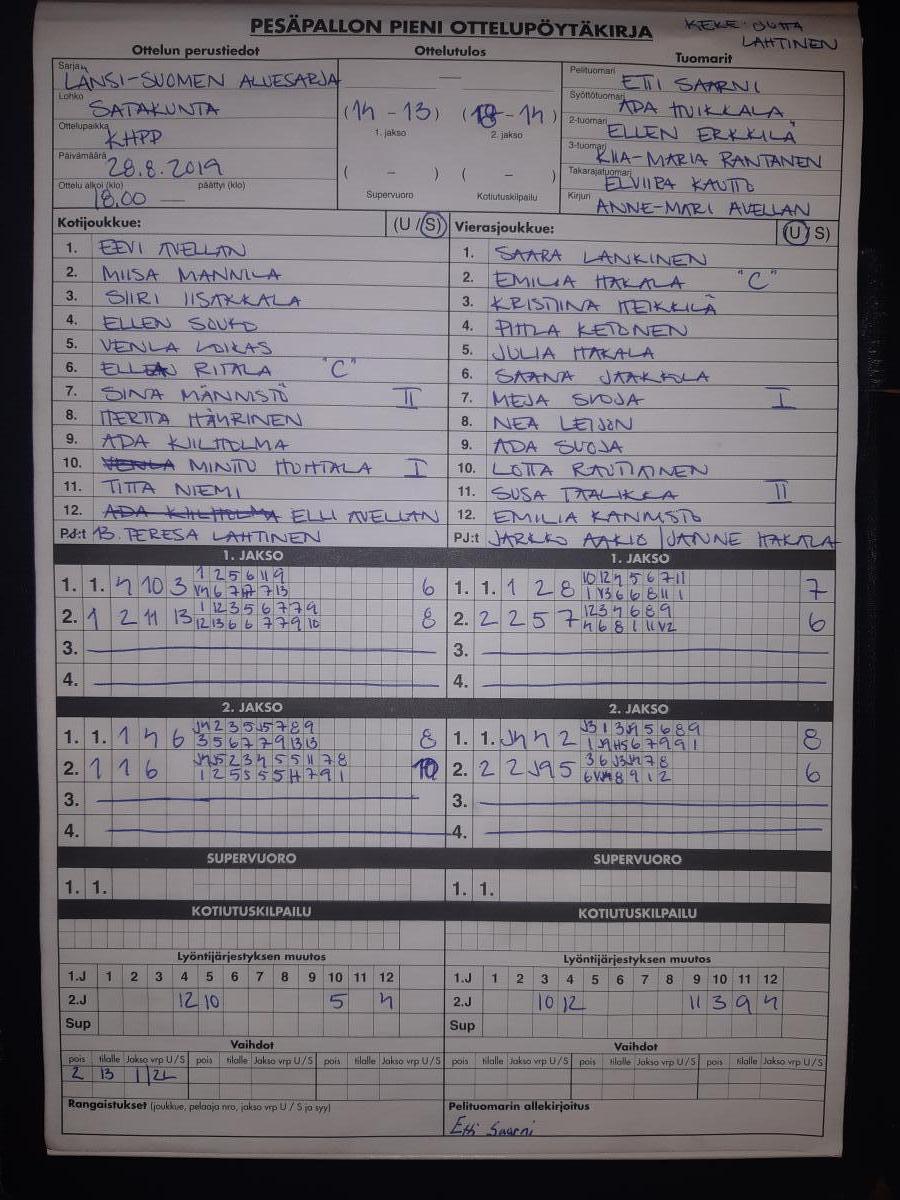 PESÄPALLON PIENI OTTELUPÖYTÄKIRJA
LAHTINEN
Ottelun perustiedot Ottelutulos Tuomarit
Sarja LÄNSI-SUOMEN ALUESARJA
Lohko SATAKUNTA
Ottelupaikka KHPP
Päivämäärä 28.8.2019
Ottelu alkoi (klo) 18.00 päättyi (klo) —
(14 - 13) (18 - 14)
1. jakso 2. jakso
( - ) ( - )
Supervuoro Kotiutuskilpailu
Pelituomari ETTI SAARNI
Syöttötuomari ADA HUIKKALA
2-tuomari ELLEN ERKKILÄ
3-tuomari KIIA-MARIA RANTANEN
Takarajatuomari ELVIIRA KAUTTO
Kirjuri ANNE-MARI AVELLAN
Kotijoukkue: (U / S)
1. EEVI AVELLAN
2. MIISA MANNILA
3. SIIRI IISAKKALA
4. ELLEN SOUKO
5. VENLA LOIKAS
6. ELLEN RITALA "C"
7. SINA MÄNNISTÖ II
8. HERTTA HÄYRINEN
9. ADA KIILHOLMA
10. MINTTU HUHTALA I
11. TITTA NIEMI
12. ADA KIILHOLMA ELLI AVELLAN
PJ:t 13. TERESA LAHTINEN
Vierasjoukkue: (U / S)
1. SAARA LANKINEN
2. EMILIA HAKALA "C"
3. KRISTIINA HEIKKILÄ
4. PIHLA KETONEN
5. JULIA HAKALA
6. SAANA JAAKKOLA
7. MEJA SUOJA I
8. NEA LEIJON
9. ADA SUOJA
10. LOTTA RAUTIAINEN
11. SUSA TAALIKKA II
12. EMILIA KANNISTO
PJ:t JARKKO AAKIO / JANNE HAKALA
1. JAKSO
1. 1. 4 10 3 6
2. 1 2 11 13 8
3.
4.
1. JAKSO
1. 1. 1 2 8 7
2. 2 2 5 7 6
3.
4.
2. JAKSO
1. 1. 1 4 6 8
2. 1 1 6 10
3.
4.
2. JAKSO
1. 1. 8
2. 2 2 6
3.
4.
SUPERVUORO
1. 1.
SUPERVUORO
1. 1.
KOTIUTUSKILPAILU
KOTIUTUSKILPAILU
Lyöntijärjestyksen muutos
1.J 1 2 3 4 5 6 7 8 9 10 11 12
2.J 12 10 5 4
Sup
Lyöntijärjestyksen muutos
1.J 1 2 3 4 5 6 7 8 9 10 11 12
2.J 10 12 11 3 9 4
Sup
Vaihdot
pois tilalle Jakso vrp U / S pois tilalle Jakso vrp U / S pois tilalle Jakso vrp U / S
2 13
Vaihdot
pois tilalle Jakso vrp U / S pois tilalle Jakso vrp U / S pois tilalle Jakso vrp U / S
Rangaistukset (joukkue, pelaaja nro, jakso vrp U / S ja syy)
Pelituomarin allekirjoitus
Etti Saarni